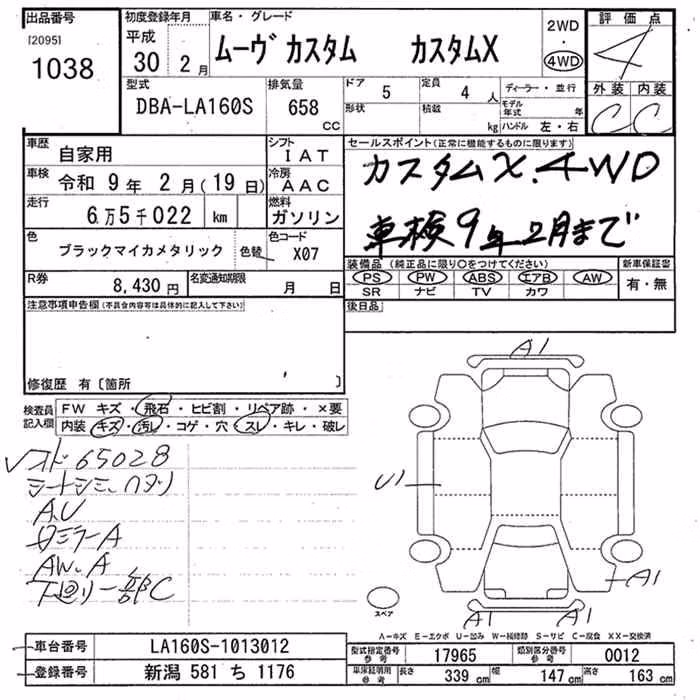 出品番号 初度登録年月 車名・グレード 評価点
[2095] 平成 2WD
1038 30 2月 ムーヴ カスタム カスタムX ・ 4
4WD
型式 排気量 ドア 5 定員 4人 ディーラー・並行 外装 内装
DBA-LA160S 658 cc 形状 積載 kg モデル年式 年 C C
ハンドル 左・右
車歴 自家用 シフト IAT セールスポイント(正常に機能するものに限ります)
車検 令和 9年 2月(19日) 冷房 AAC カスタムX.4WD
走行 6万5千022 km 燃料 ガソリン 車検9年2月まで
色 ブラックマイカメタリック 色替 色コード X07
装備品(純正品に限り○をつけてください) 新車保証書
PS PW ABS エアB AW 有・無
SR ナビ TV カワ
R券 8,430円 名変通知期限 月 日
後日品
注意事項申告欄(不具合内容等は具体的に記入して下さい)
修復歴 有〔箇所 〕
検査員記入欄 FW キズ・飛石・ヒビ割・リペア跡・×要
内装 キズ・汚レ・コゲ・穴・スレ・キレ・破レ
オド65028
シートシミ、ハダリ
A.U
ミラーA
AW.A
下廻リ一部C
A1
U1
A1
A1 A1
スペア
A-キズ E-エクボ U-凹み W-補修跡 S-サビ C-腐食 XX-交換済
車台番号 LA160S-1013012
登録番号 新潟 581 ち 1176
型式指定番号 参考 17965 類別区分番号 参考 0012
車庫証明用 参考 長さ 339 cm 幅 147 cm 高さ 163 cm